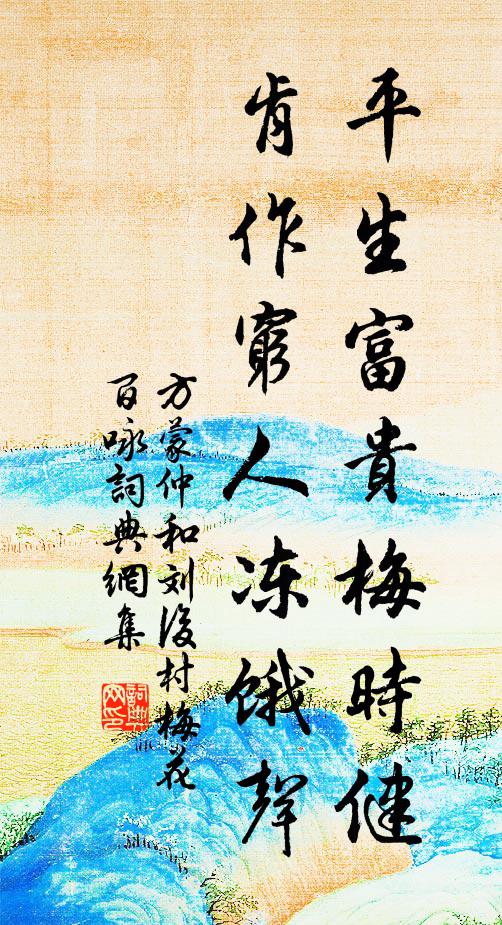 平生富貴梅時健
肯作窮人凍餓聲
方蒙仲和刘後村梅花
百咏詞典網集
詞典网印